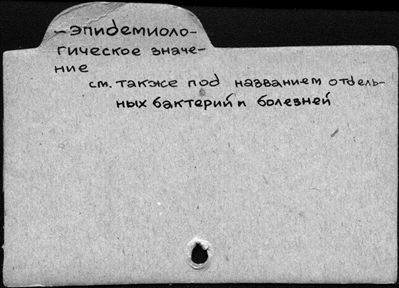 – эпидемиоло-
гическое значе-
ние
см. также под названием отдель-
ных бактерий и болезней